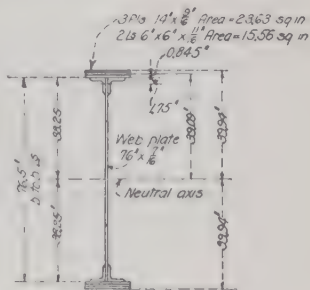 3Pls 14"x 9/16" Area=23.63 sq in
2Ls 6"x6"x 11/16" Area=15.56 sq in
0.845"
1.75"
38.25"
39.09"
39.94"
Web plate
76"x 7/16"
76.5"
b to b Ls
Neutral axis
38.25"
39.94"